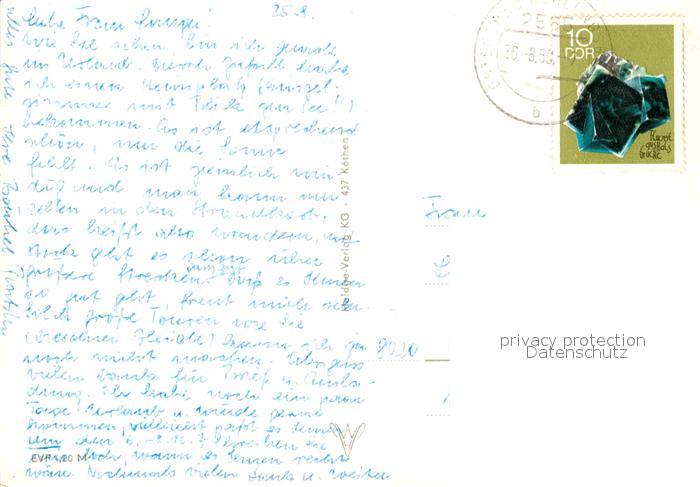 25.8.
Liebe Frau
Wie Sie sehen, bin ich gerade
im Urlaub. Durch Zufall habe
ich einen (Einzel-
zimmer mit Blick zur See!!)
bekommen. Es ist entsprechend
schön, nur die Sonne
fehlt. Es ist ziemlich win-
dig und man kann nur
selten in den Strandkorb,
das heißt also wandern, mit
Stock geht es schon über
größere Strecken ganz gut. Daß es Ihnen
so gut geht, freut mich sehr.
Solch große Touren wie Sie
(Dresdner Heide) kann ich ja
noch nicht machen. Übrigens
vielen Dank für Brief u. Einla-
dung. Ich habe noch ein paar
Tage Urlaub u. würde gerne
kommen, vielleicht paßt es Ihnen
um den 6.-8.11.? Schreiben Sie
doch, wann es Ihnen recht
wäre. Nochmals vielen Dank u. weiter
alles Gute Ihre
EVP 1,20 M
Verlag KG · 437 Köthen
2565
26.-8.69
b
10
DDR
Frau
8020
privacy protection
Datenschutz